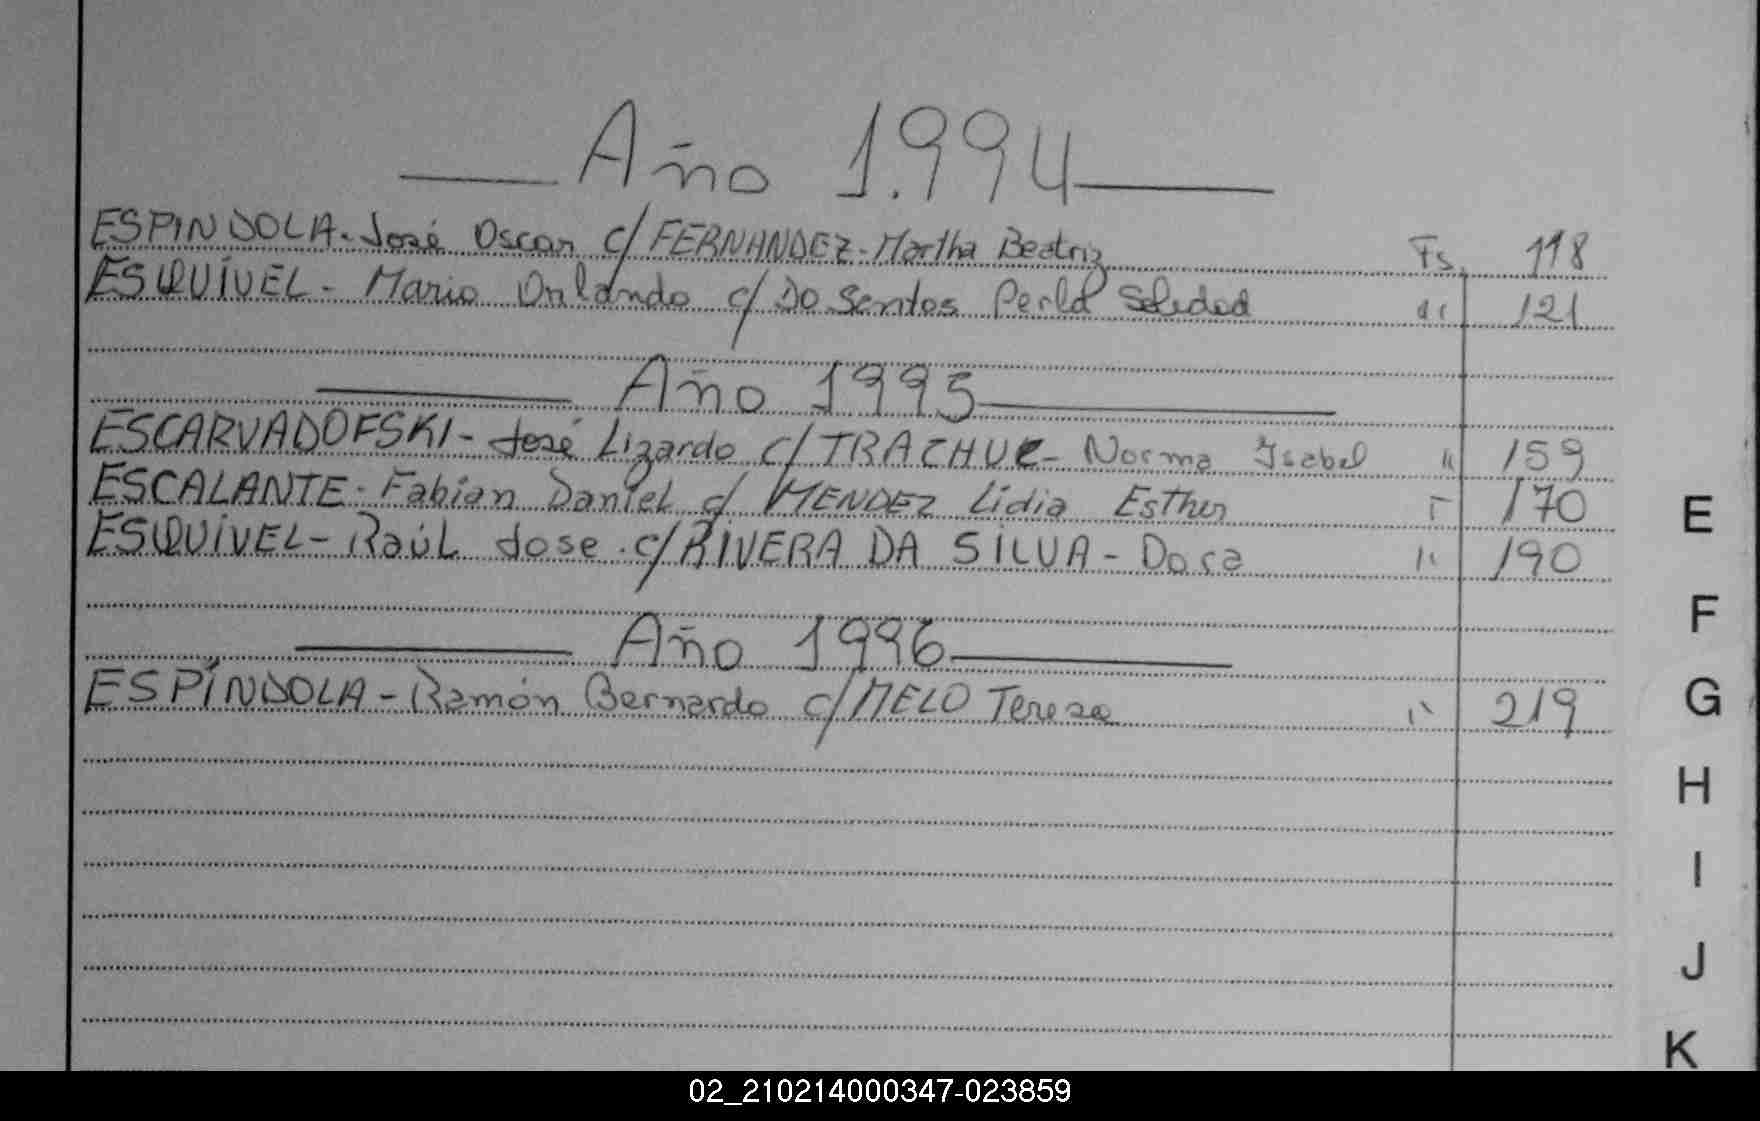 Año 1.994
ESPINDOLA - José Oscar c/ FERNANDEZ - Martha Beatriz Fs. 118
ESQUÍVEL - Mario Orlando c/ Do Santos Perla Soledad " 121
Año 1995
ESCARVADOFSKI - José Lizardo c/ TRACHUK - Norma Isabel " 159
ESCALANTE - Fabian Daniel c/ MENDEZ Lidia Esther " 170
ESQUÍVEL - Raúl Jose c/ RIVERA DA SILVA - Dora " 190
Año 1996
ESPÍNDOLA - Ramón Bernardo c/ MELO Teresa " 219
E
F
G
H
I
J
K
02_210214000347-023859